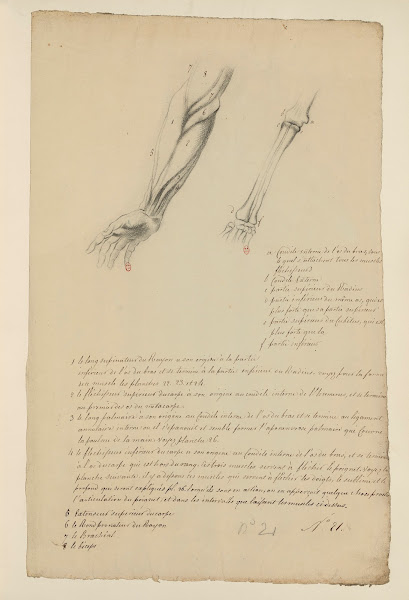 a Condile externe de l'os du bras, sous
lequel s'attachent tous les muscles
fléchisseurs
b Condile Extern
c partie superieure du Radius
partie inferieure du même os, qui est
plus forte que sa partie superieure
e partie superieure du Cubitus, qui est
plus forte que la
f partie inferieure
1 le long supinateur du Rayon a son origine à la partie
inferieure de l'os du bras et se termine à la partie inferieure du Radius. voyez sous la forme
les planches 22. 23. et 24
2 le fléchisseur superieur du carpe a son origine au condile interne de l'Humerus, et se termine
au premier des os du metacarpe.
3 le long palmaire, a son origine au condile interne, de l'os du bras et se termine au ligament
annulaire interne, on il s'epanouit et semble former l'aponevrose palmaire que Couvre
la paulme de la main. voyez planche 26.
4 le fléchisseur inferieur du carpe a son origine au Condile interne de l'os du bras, et se termine
à l'os du carpe qui est hors du rang. Ces trois muscles servent à fléchir le poignet. voyez la
planche suivante. il y a dessous les muscles qui servent à fléchir les doigts, le sublime et le
profond qui seront expliqués pl. 26. lorsqu'ils sont en action, on en apperçoit quelque chose
l'articulation du poignet, et dans les intervales que laissent les muscles cidessus.
5 Extenseur superieur du carpe
6 le Rond pronateur du Rayon
7 le Brachial
8 le biceps
n° 21
N° 21.